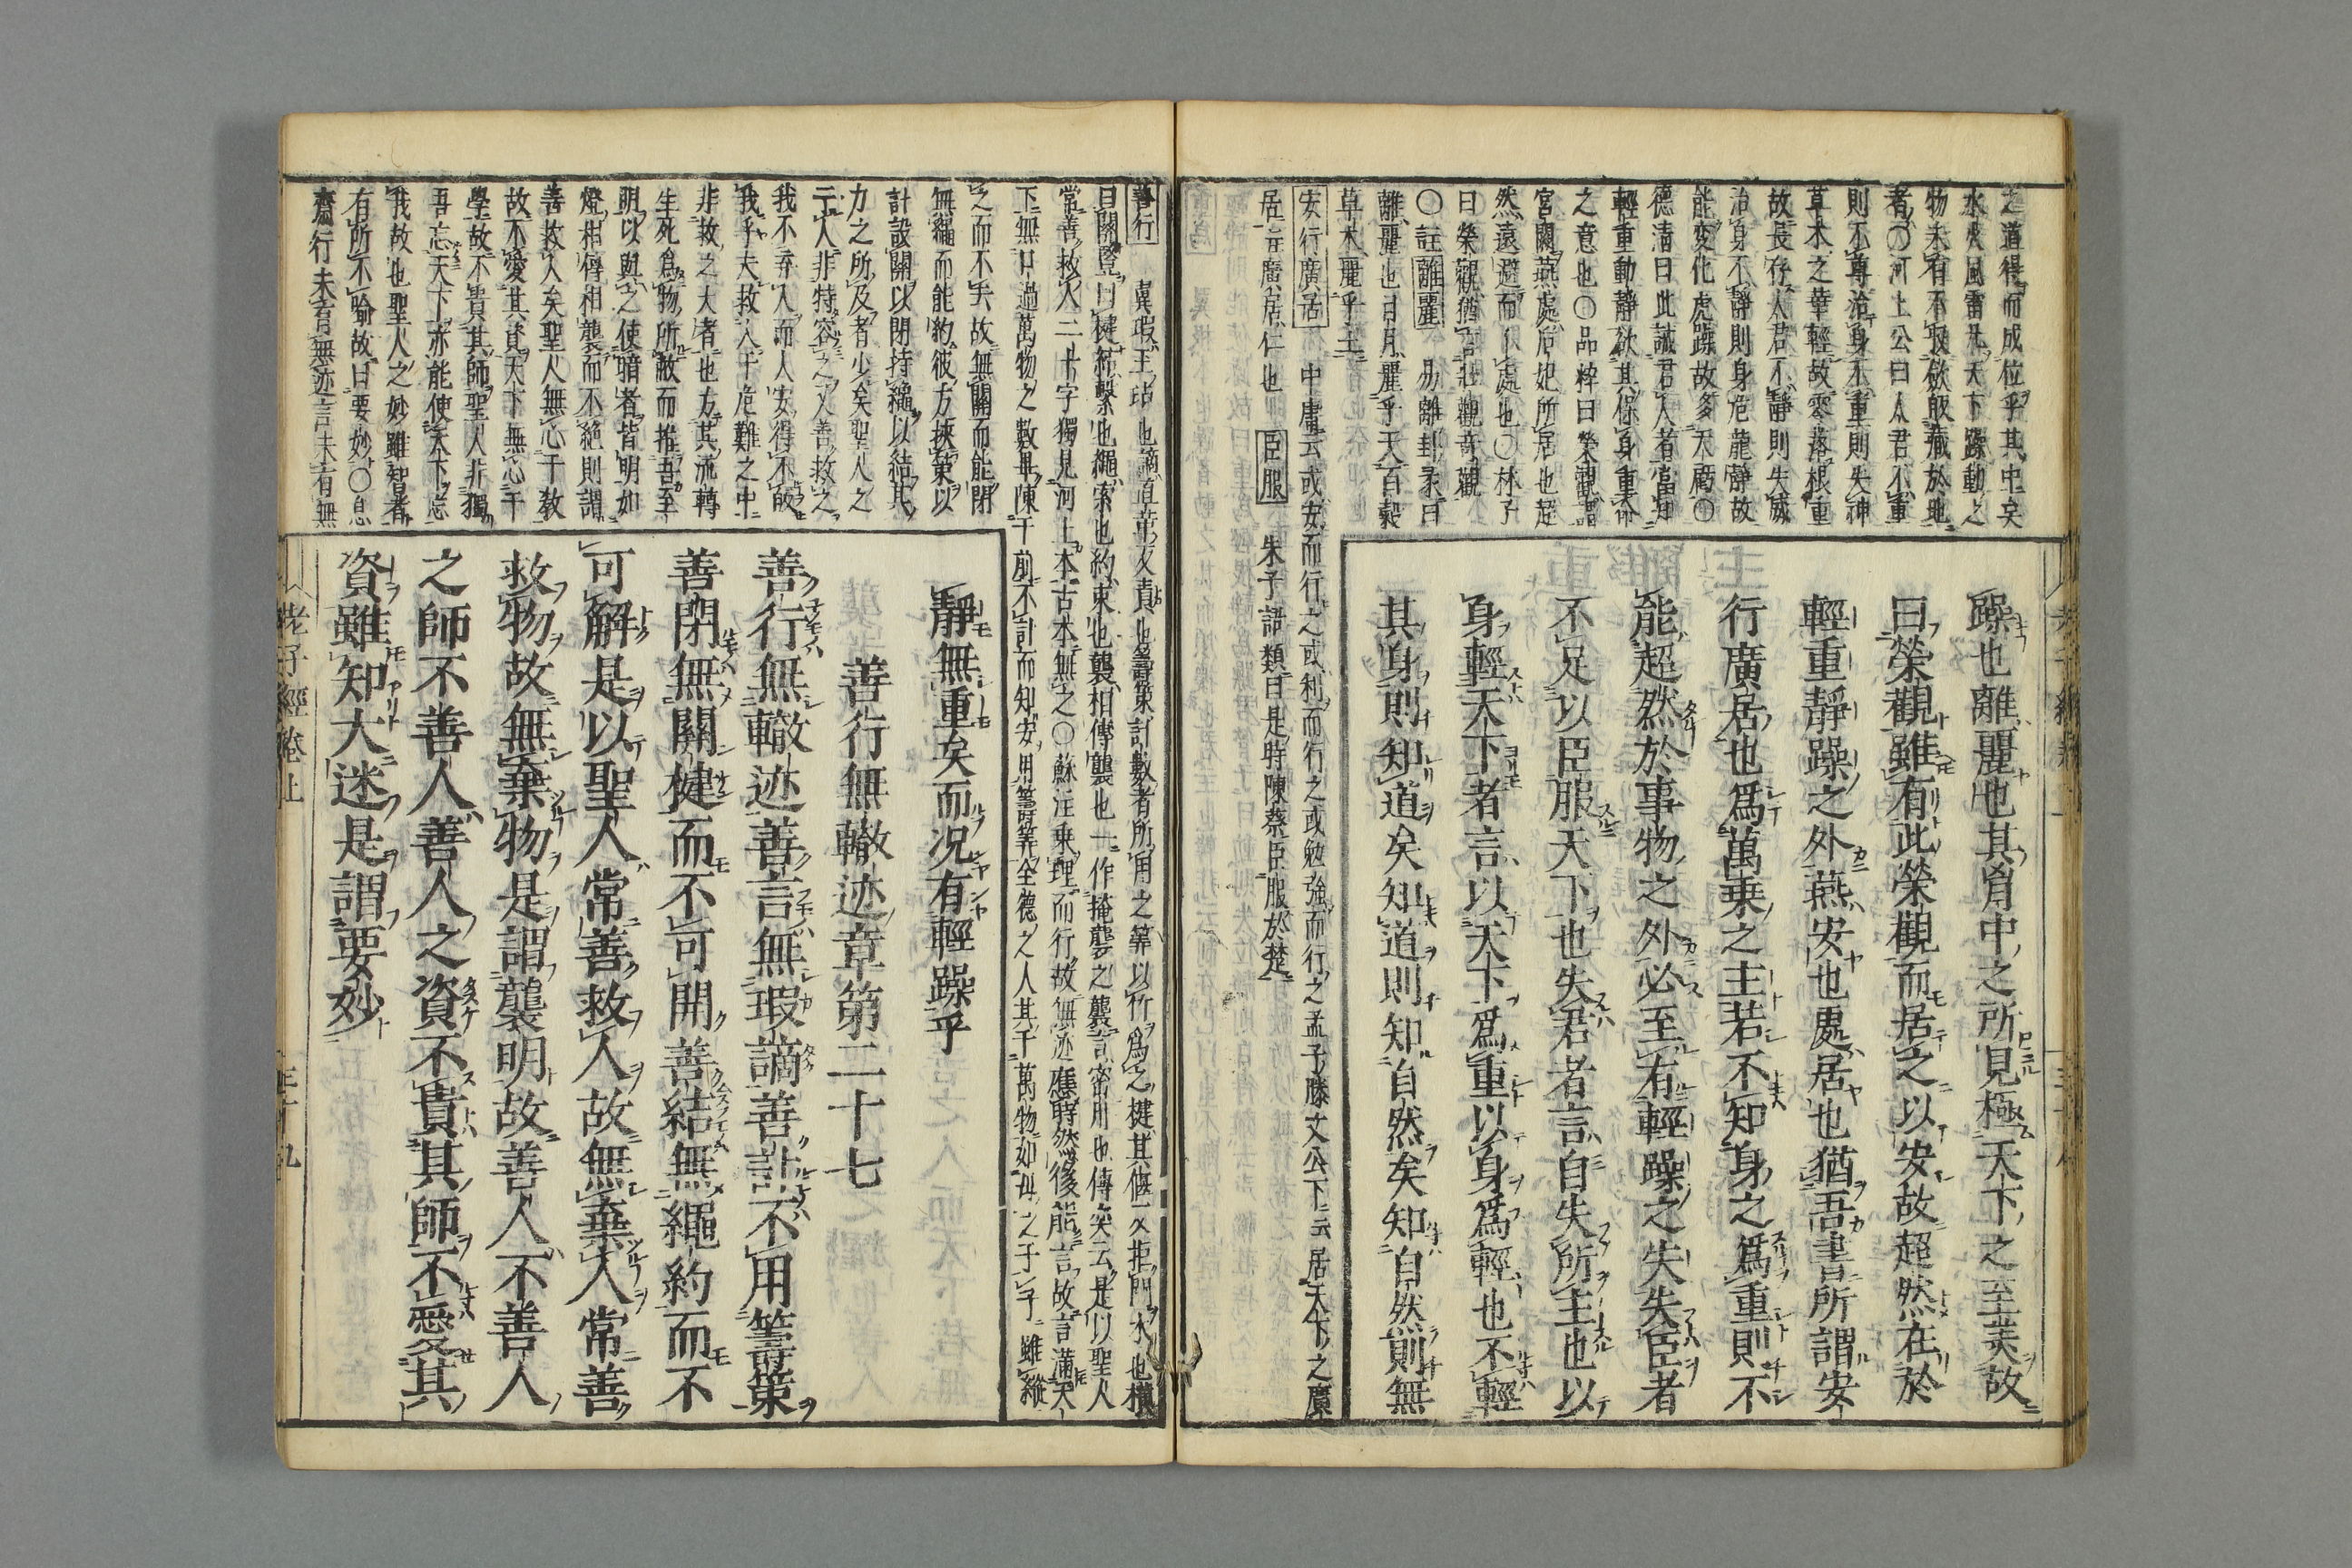 之道得而成位乎其中矣
水火風雷凡天下躁動之
物未有不收斂厭藏於地
者〇河上公曰人君不重
則不尊治身不重則失神
草木之華輕故零落根重
故長存人君不靜則失威
治身不靜則身危龍靜故
能變化虎躁故多夭虧〇
德清曰此誡君人者當知
輕重動靜欲其保身重命
之意也〇品粹曰榮觀謂
宮闕燕處后妃所居也超
然遠避而不處也〇林子
曰榮觀猶言壯觀奇觀
〇註離麗 易離卦彖曰
離麗也日月麗乎天百穀
草木麗乎土
安行廣居 中庸云或安而行之或利而行之或勉強而行之孟子滕文公下云居天下之廣
居註廣居仁也 臣服 朱子語類曰是時陳蔡臣服於楚
躁也離麗也其胷中之所見極天下之至美故
曰榮觀雖有此榮觀而居之以安故超然在於
輕重靜躁之外燕安也處居也猶吾書所謂安
行廣居也爲萬乗之主若不知身之爲重則不
能超然於事物之外必至有輕躁之失失臣者
不足以臣服天下也失君者言自失所主也以
身輕天下者言以天下爲重以身爲輕也不輕
其身則知道矣知道則知自然矣知自然則無
善行 眞瑕玉玷也謫直革反責也籌策計數者所用之筭以竹爲之楗其偃反拒門木也橫
曰關竪曰楗結繫也繩索也約束也襲相傳襲也一作掩襲之襲言密用也傅奕云是以聖人
常善救人二十字獨見河上本古本無之〇蘇注乘理而行故無迹應時然後能言故言滿天
下無口過萬物之數畢陳于前不計而知安用籌筭全德之人其于萬物如母之于子雖縱
之而不去故無關而能閉
無繩而能約彼方挾策以
計設關以閉持繩以結其
力之所及者少矣聖人之
于人非特容之又善救之
我不弃人而人安得不皈
我乎夫救人于危難之中
非救之大者也方其流轉
生死爲物所蔽而推吾至
明以與之使暗者皆明如
燈相傳相襲而不絕則謂
善救人矣聖人無心于敎
故不愛其資天下無心于
學故不貴其師聖人非獨
吾忘天下亦能使天下忘
我故也聖人之妙雖智者
有所不喻故曰要妙〇息
齋行未有無迹言未有無
靜無重矣而况有輕躁乎
善行無轍迹章第二十七
善行無轍迹善言無瑕謫善計不用籌策
善閉無關楗而不可開善結無繩約而不
可解是以聖人常善救人故無棄人常善
救物故無棄物是謂襲明故善人不善人
之師不善人善人之資不貴其師不愛其
資雖知大迷是謂要妙
老子經卷上
三十九